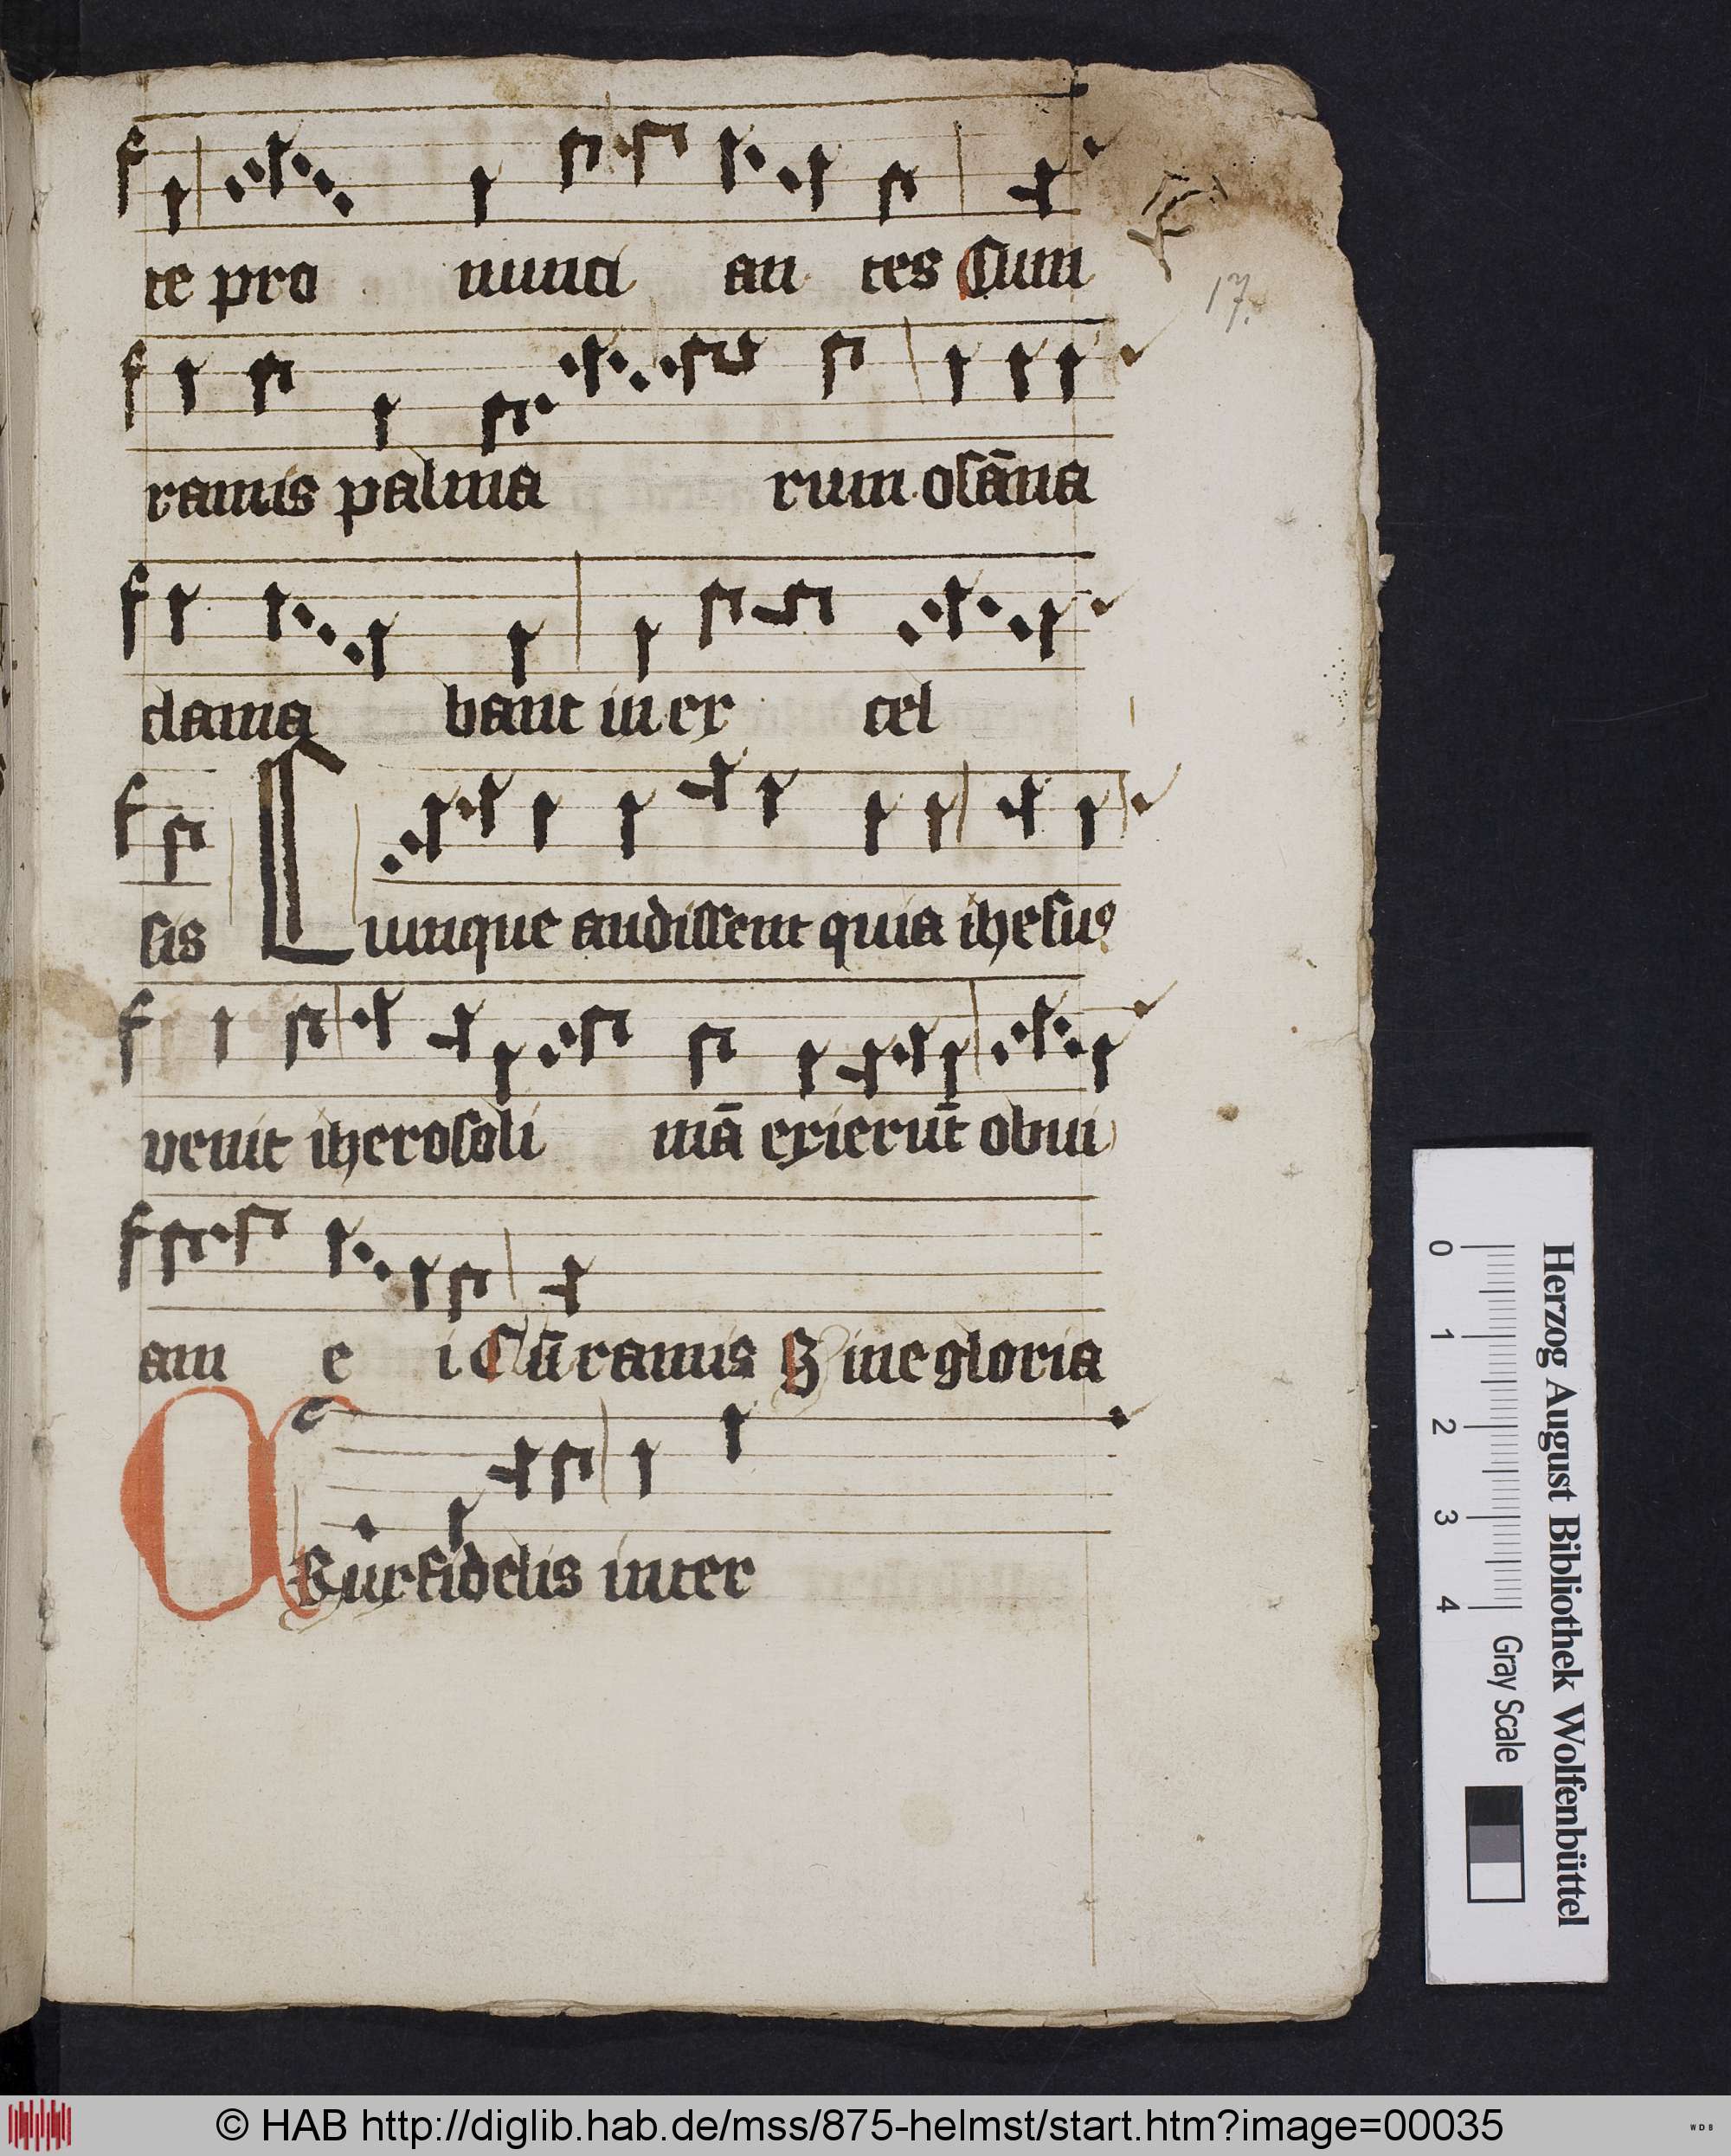 te pro nunci an tes Cum
17.
ramis palma rum osāna
clama bant in ex cel
sis Cumque audissent quia ihesus
venit iherosoli mā exierūt obui
am e i Cū ramis sine gloria
vir fidelis inter
Herzog August Bibliothek Wolfenbüttel
0 1 2 3 4 Gray Scale
© HAB http://diglib.hab.de/mss/875-helmst/start.htm?image=00035
WDB